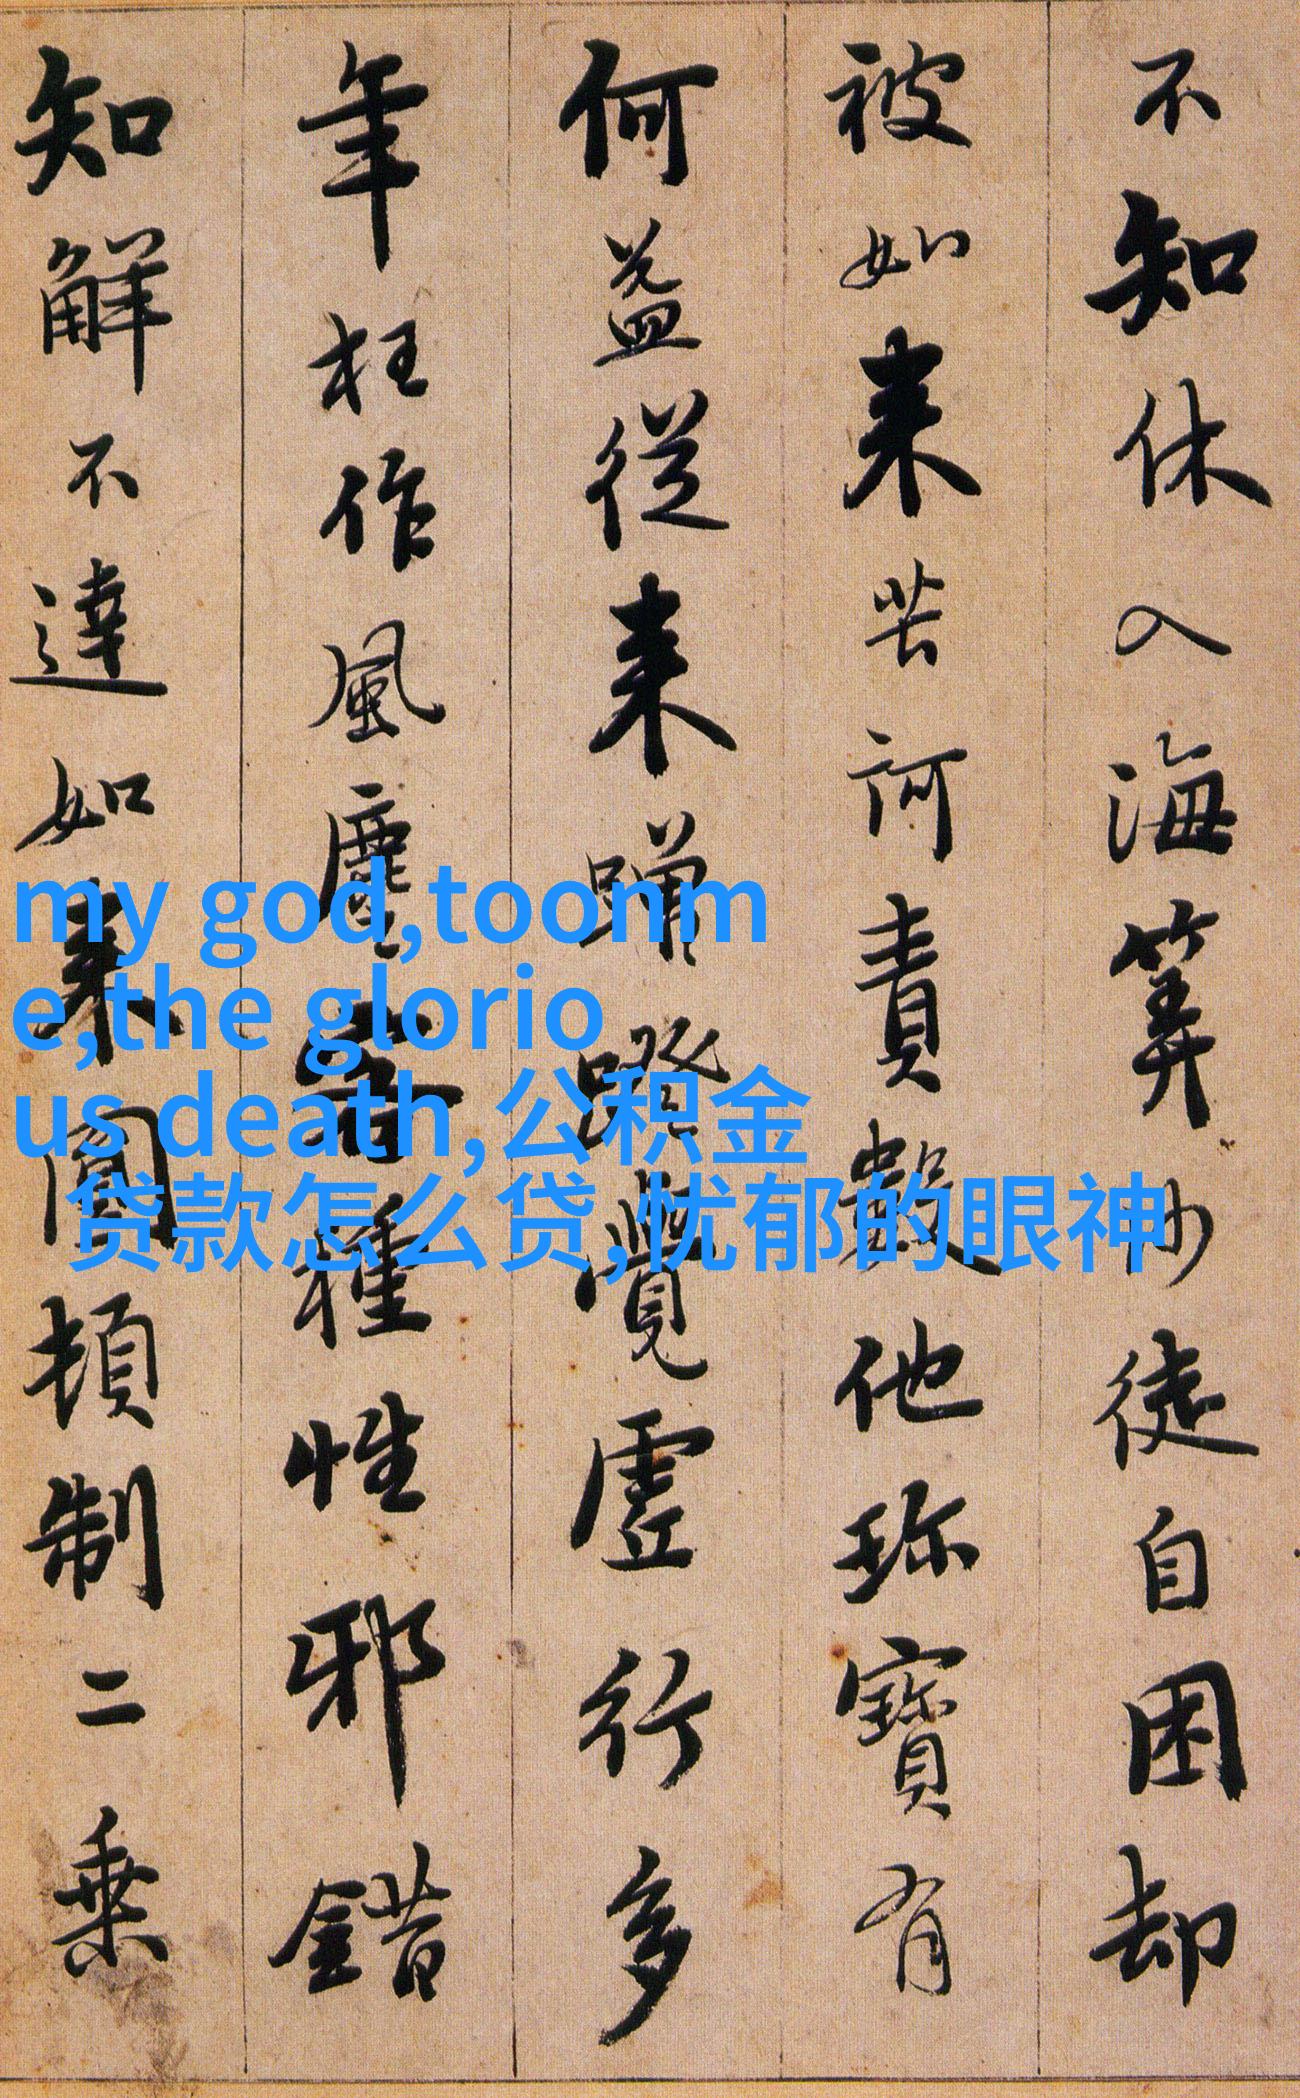 不知休入海筭沙徒自困却
被如来苦訶責數他珎寳有
何益從来蹭蹬覺虚行多
年枉作風塵客種性邪錯
知解不達如来圓頓制二乗
my god,toonm
e,the glorio
us death,公积金
贷款怎么贷,忧郁的眼神